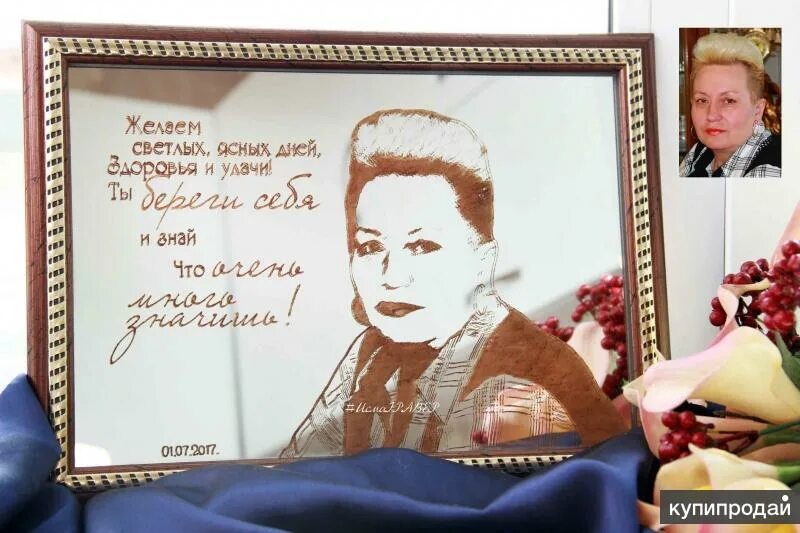 Желаем
светлых, ясных дней,
Здоровья и удачи!
Ты береги себя
и знай
Что очень
много
значишь!
01.07.2017г.
купипродай